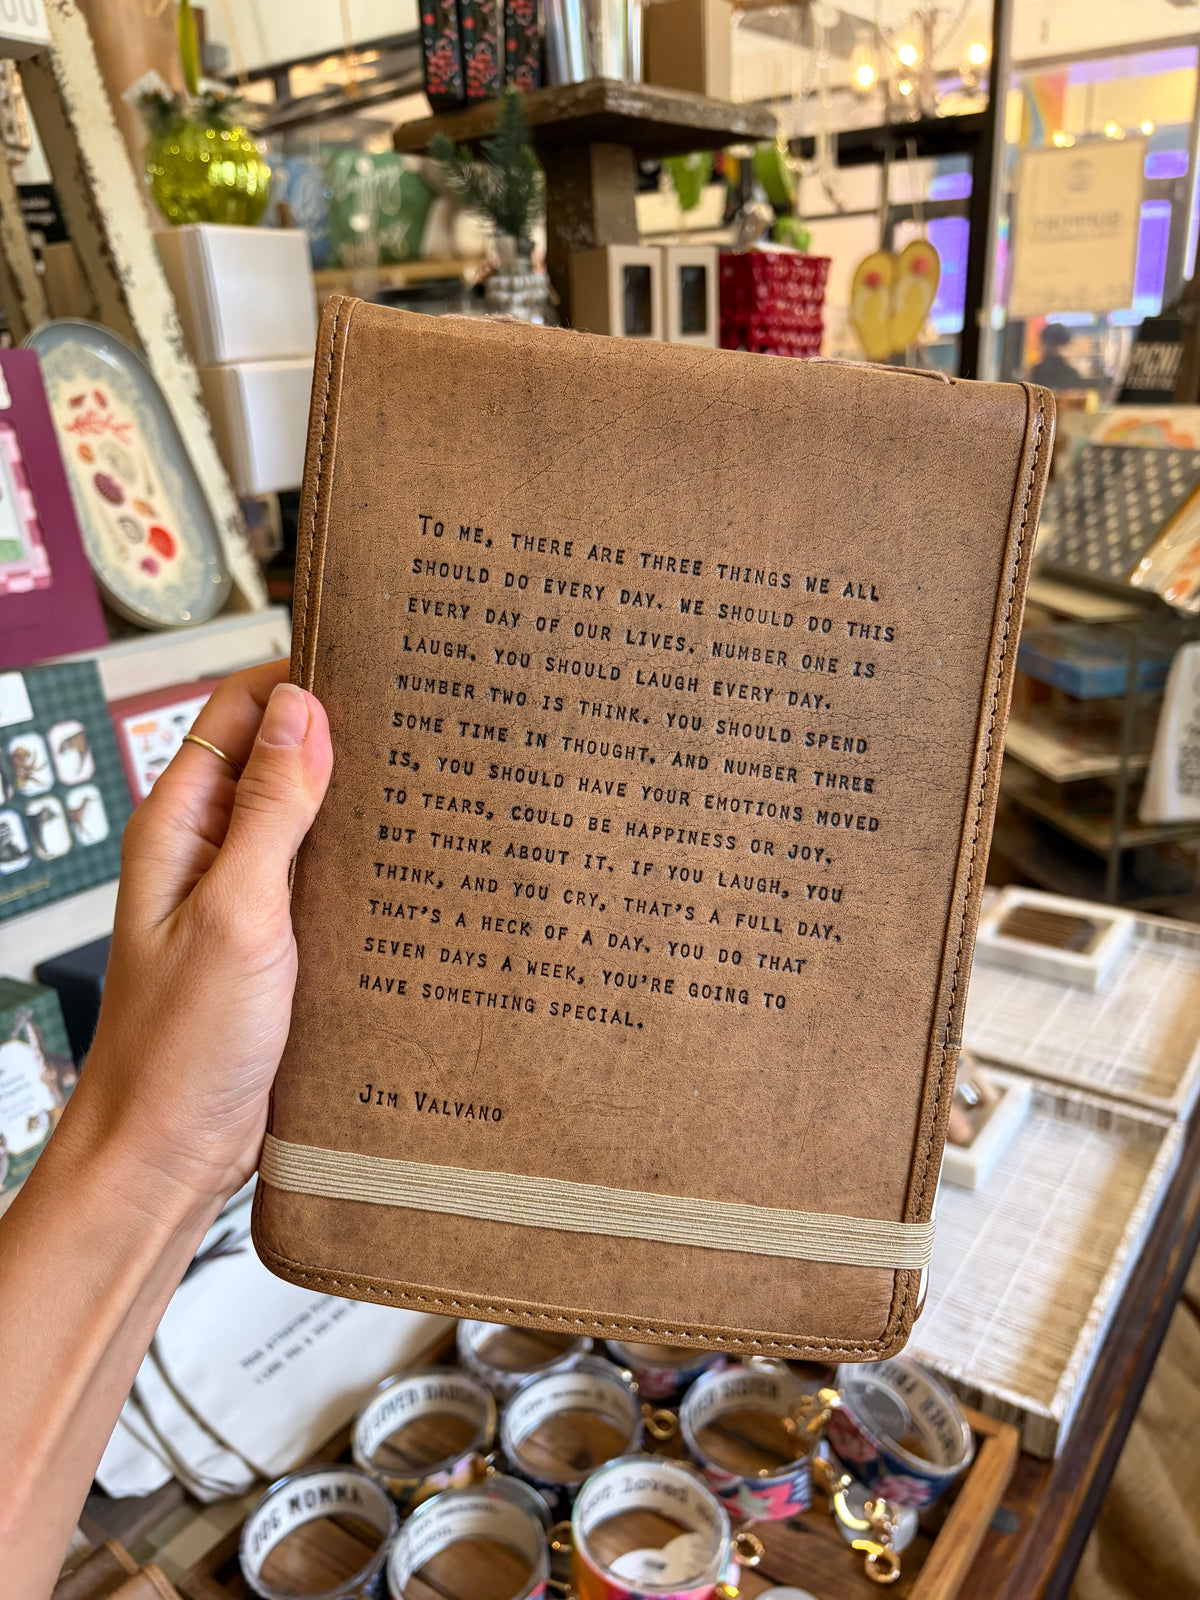 To me, there are three things we all
should do every day. We should do this
every day of our lives. Number one is
laugh. You should laugh every day.
Number two is think. You should spend
some time in thought. And number three
is, you should have your emotions moved
to tears, could be happiness or joy.
But think about it. If you laugh, you
think, and you cry, that's a full day.
That's a heck of a day. You do that
seven days a week, you're going to
have something special.
Jim Valvano
DOG MOMMA